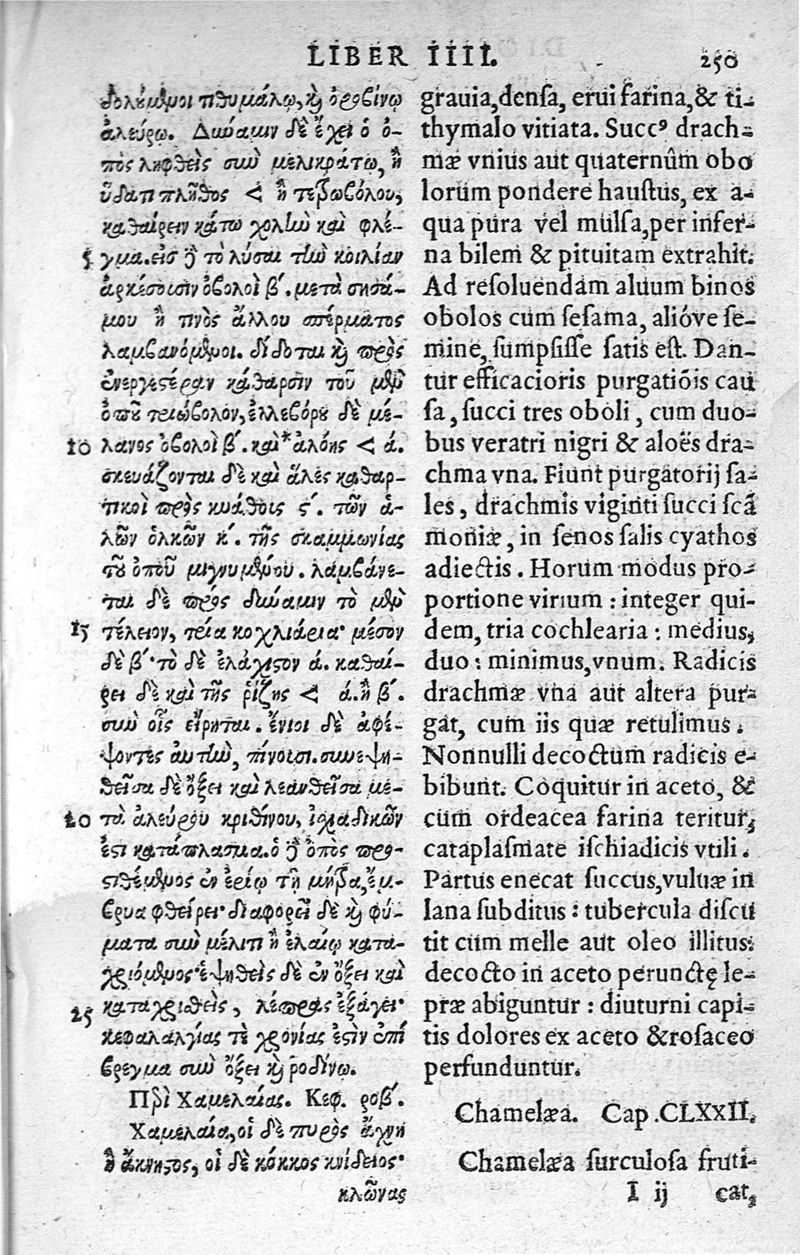 LIBER IIII. 250
δολούμενοι τιθυμάλῳ, καὶ ὀροβίνῳ
ἀλεύρῳ. Δύναμιν δὲ ἔχει ὁ ὀ-
πὸς ληφθεὶς σὺν μελικράτῳ, ἢ
ὕδατι πλῆθος < ἢ τετρωβόλου,
καθαίρειν κάτω χολὴν καὶ φλέ-
5 γμα. εἰς δὲ τὸ λῦσαι τὴν κοιλίαν
ἀρκέσουσιν ὀβολοὶ β΄. μετὰ σησά-
μου ἢ τινὸς ἄλλου σπέρματος
λαμβανόμενοι. δίδοται καὶ πρὸς
ἐνεργεστέραν κάθαρσιν τοῦ μὲν
ὀποῦ τριώβολον, ἐλλεβόρου δὲ μέ-
10 λανος ὀβολοὶ β΄. καὶ* ἀλόης < ά.
σκευάζονται δὲ καὶ ἅλες καθαρ-
τικοὶ πρὸς κυάθοις ϛ΄. τῶν ἁ-
λῶν ὁλκῶν κ΄. τῆς σκαμμωνίας
τοῦ ὀποῦ μιγνυμένου. λαμβάνε-
ται δὲ πρὸς δύναμιν τὸ μὲν
15 τέλειον, τρία κοχλιάρια· μέσον
δὲ β΄· τὸ δὲ ἐλάχιστον ά. καθαί-
ρει δὲ καὶ τῆς ῥίζης < ά. ἢ β΄.
σὺν οἷς εἴρηται. ἔνιοι δὲ ἀφέ-
ψοντες αὐτὴν, πίνουσι. συνεψη-
θεῖσα δὲ ὄξει καὶ λεανθεῖσα με-
20 τὰ ἀλεύρου κριθίνου, ἰσχιαδικῶν
ἐστι κατάπλασμα. ὁ δὲ ὀπὸς προσ-
τιθέμενος ἐν ἐρίῳ τῇ μήτρᾳ, ἔμ-
βρυα φθείρει· διαφορεῖ δὲ καὶ φύ-
ματα σὺν μέλιτι ἢ ἐλαίῳ κατα-
χριόμενος· ἑψηθεὶς δὲ ἐν ὄξει καὶ
25 καταχρισθεὶς, λέπρας ἐξάγει·
κεφαλαλγίας τε χρονίας ἐστὶν ἐπί
βρεγμα σὺν ὄξει καὶ ῥοδίνῳ.
Περὶ Χαμελαίας. Κεφ. ροβ΄.
Χαμελαία, οἱ δὲ πυρὸς ἄχνη
ἢ ἄκνηστος, οἱ δὲ κόκκος κνίδειος·
κλῶνας
grauia, densa, erui farina, & ti-
thymalo vitiata. Succꝰ drach-
mæ vnius aut quaternûm obo
lorum pondere haustus, ex a-
qua pura vel mulsa, per infer-
na bilem & pituitam extrahit.
Ad resoluendam aluum binos
obolos cum sesama, alióve se-
mine, sumpsisse satis est. Dan-
tur efficacioris purgatiõis cau
sa, succi tres oboli, cum duo-
bus veratri nigri & aloës dra-
chma vna. Fiunt purgatorij sa-
les, drachmis viginti succi scã
moniæ, in senos salis cyathos
adiectis. Horum modus pro-
portione virium: integer qui-
dem, tria cochlearia: medius,
duo: minimus, vnum. Radicis
drachmæ vna aut altera pur-
gat, cum iis quæ retulimus.
Nonnulli decoctum radicis e-
bibunt. Coquitur in aceto, &
cum ordeacea farina teritur,
cataplasmate ischiadicis vtili.
Partus enecat succus, vuluæ in
lana subditus: tubercula discu
tit cum melle aut oleo illitus:
decocto in aceto perunctę le-
præ abiguntur: diuturni capi-
tis dolores ex aceto & rosaceo
perfunduntur.
Chamelæa. Cap. CLXXII.
Chamelæa surculosa fruti-
I ij cat,